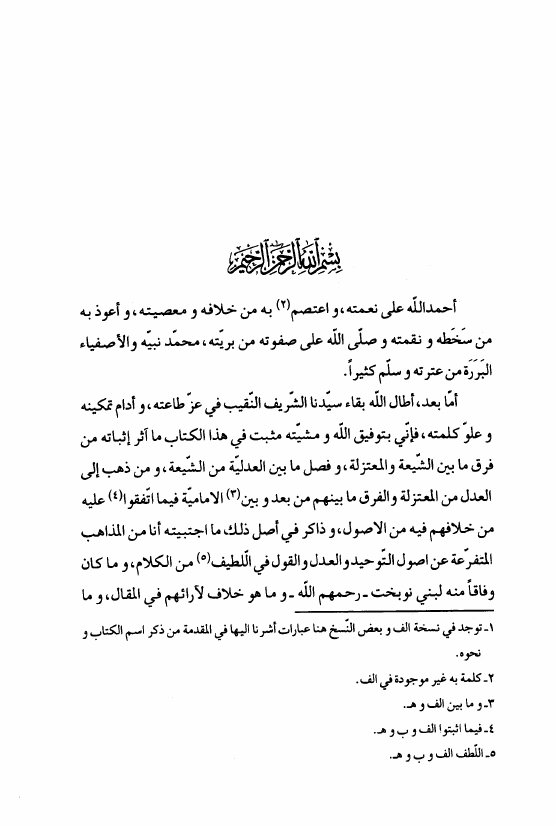 بسم الله الرحمن الرحيم
أحمدالله على نعمته، و اعتصم(٢) به من خلافه و معصيته، و أعوذ به
من سَخَطه و نقمته و صلّى الله على صفوته من بريّته، محمّد نبيّه والأصفياء
البَرَرَة من عترته و سلّم كثيراً.
أمّا بعد، أطال الله بقاء سيّدنا الشّريف النّقيب في عزّ طاعته، و أدام تمكينه
و علوّ كلمته، فإنّي بتوفيق الله و مشيّته مثبت في هذا الكتاب ما آثر إثباته من
فرق ما بين الشّيعة والمعتزلة، و فصل ما بين العدليّة من الشّيعة، و من ذهب إلى
العدل من المعتزلة والفرق ما بينهم من بعد و بين(٣) الاماميّة فيما اتّفقوا(٤) عليه
من خلافهم فيه من الاصول، و ذاكر في أصل ذلك ما اجتبيته أنا من المذاهب
المتفرّعة عن اصول التّوحيد والعدل والقول في اللّطيف(٥) من الكلام، و ما كان
وفاقاً منه لبني نوبخت ـ رحمهم الله ـ و ما هو خلاف لآرائهم في المقال، و ما
١ـ توجد في نسخة الف و بعض النّسخ هنا عبارات أشرنا اليها في المقدمة من ذكر اسم الكتاب و
نحوه.
٢ـ كلمة به غير موجودة في الف.
٣ـ و ما بين الف و هـ.
٤ـ فيما اثبتوا الف و ب و هـ.
٥ـ اللّطف الف و ب و هـ.